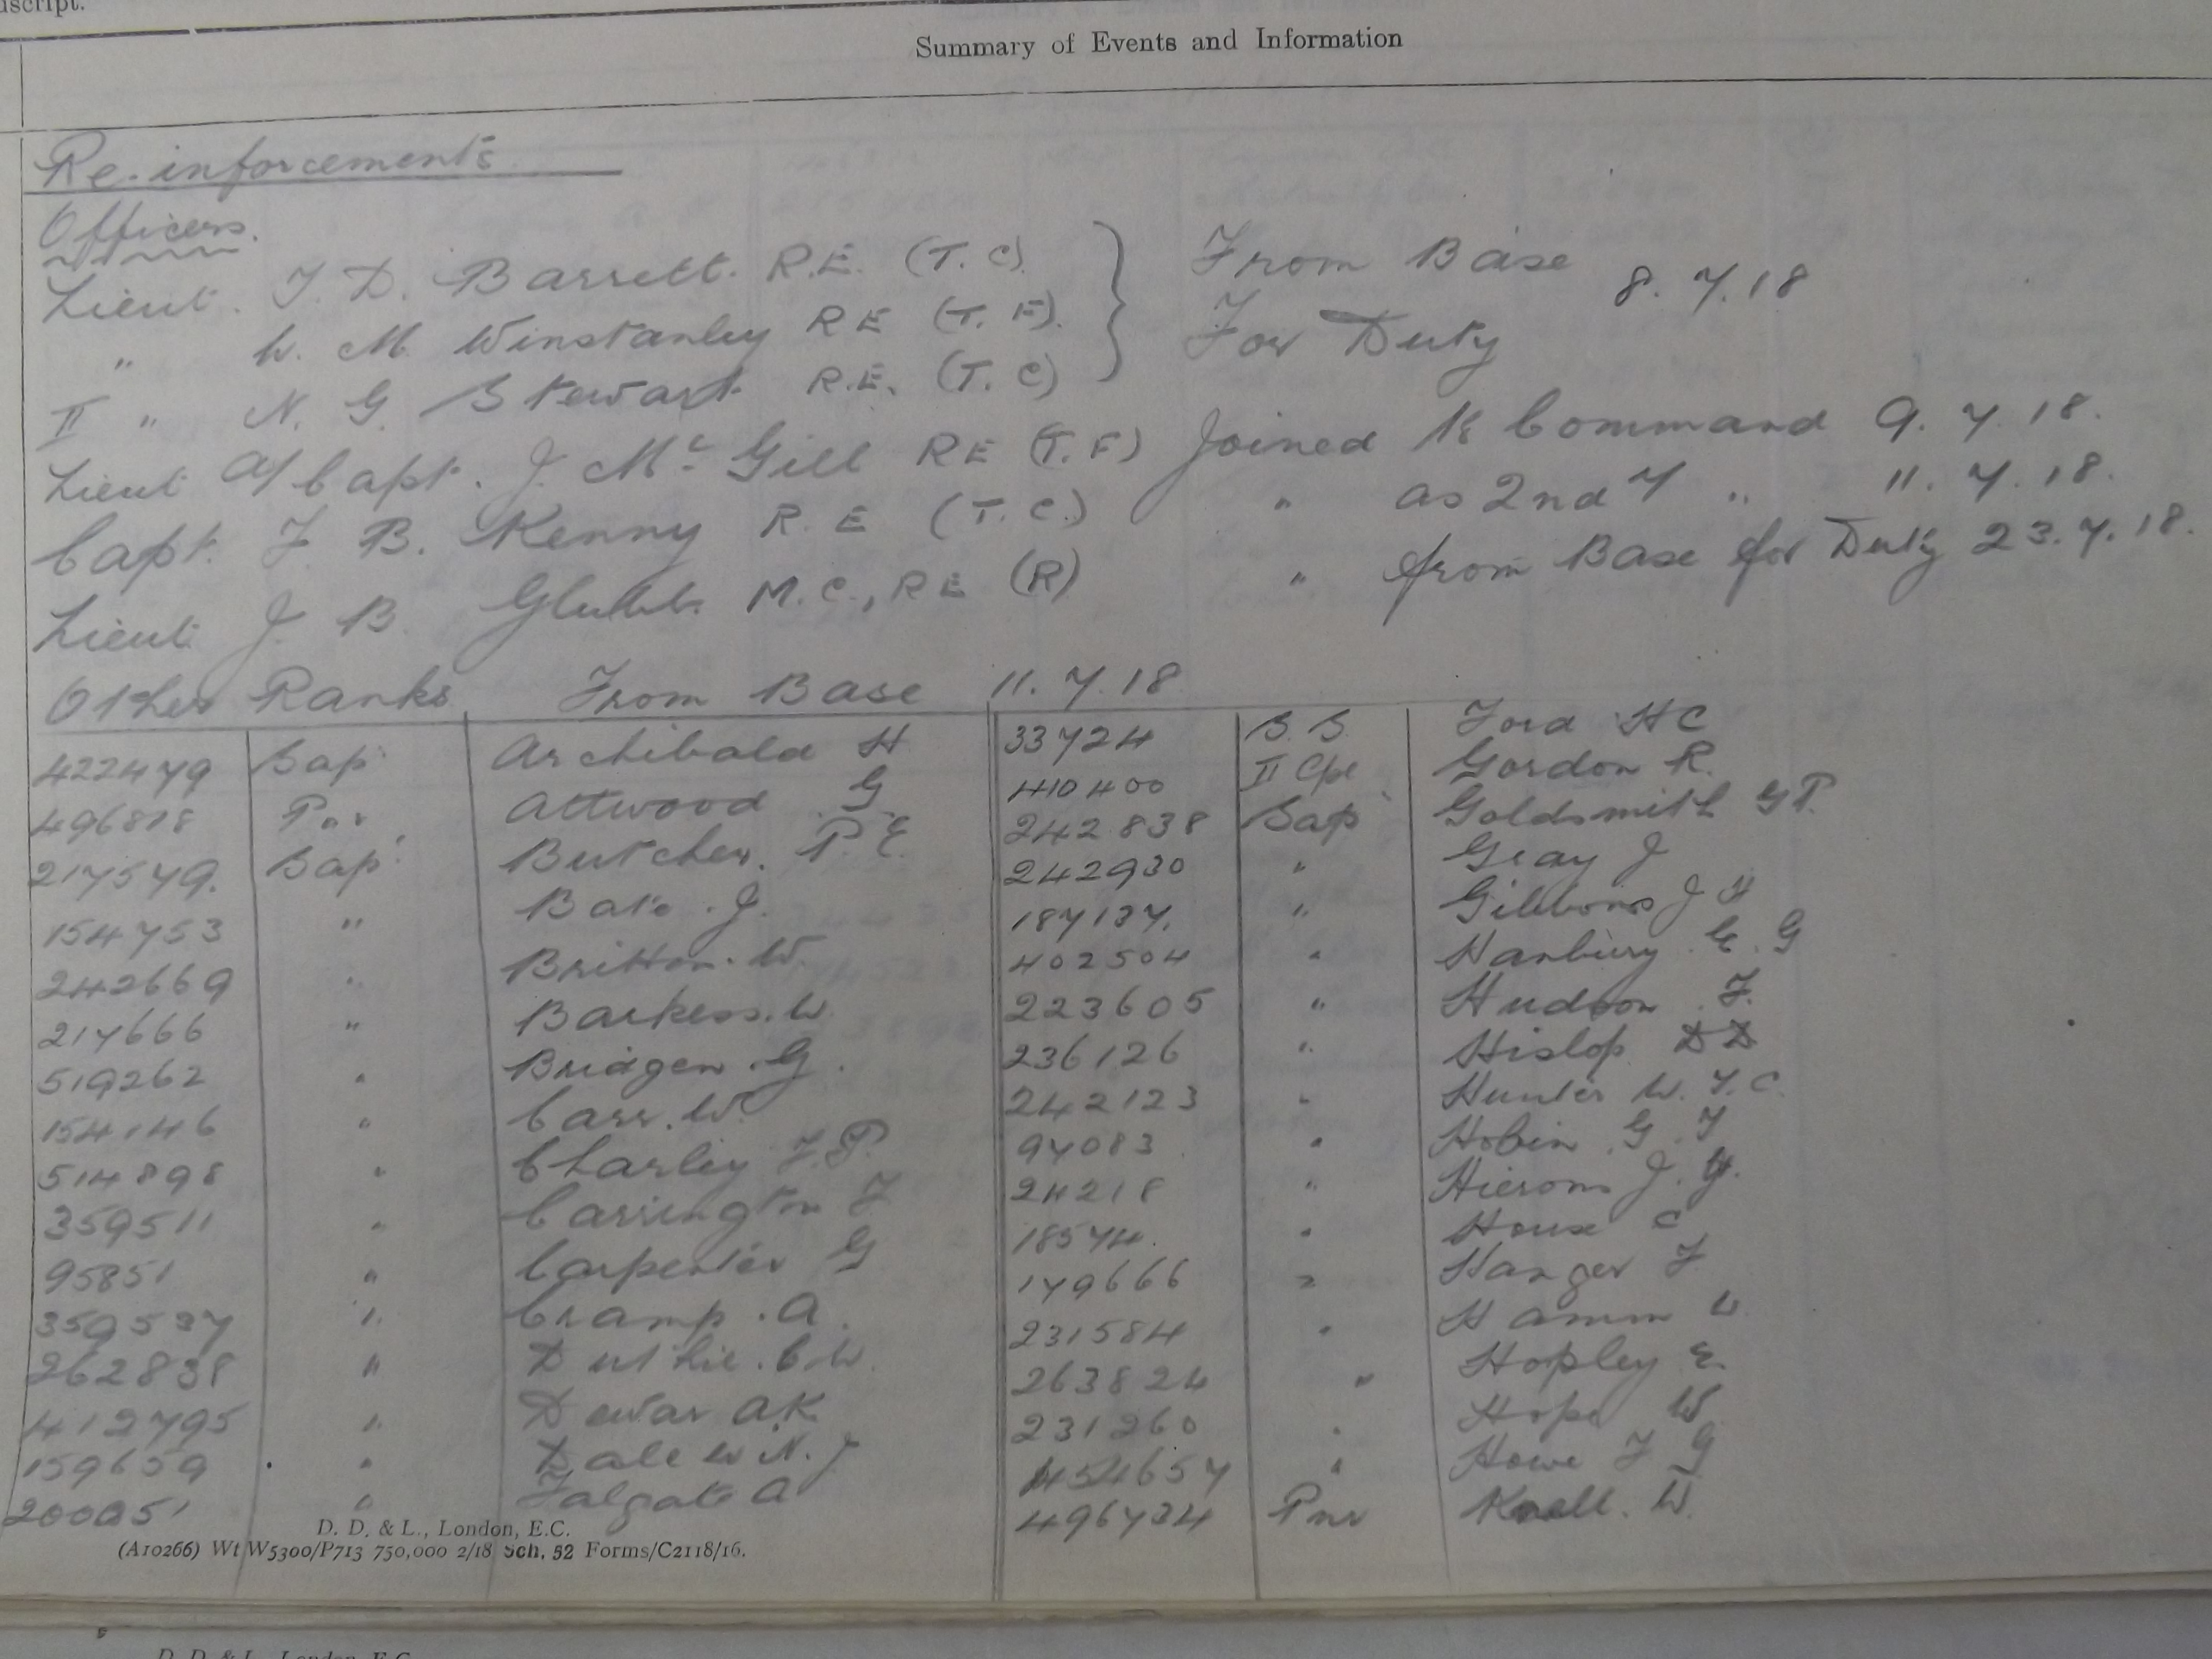 uscript.
Summary of Events and Information
Re-inforcements
Officers.
Lieut. T. D. Barrett. R.E. (T. C). From Base 8. 7. 18
" W. M Winstanley RE (T. F). For Duty
II " N. G. Stewart R.E. (T. C)
Lieut A/Capt. J. Mc Gill RE (T. F) Joined to Command 9. 7. 18.
Capt. F. B. Kenny R. E (T. C.) " as 2nd i/ " 11. 7. 18.
Lieut J. B. Glubb. M.C., RE (R) " from Base for Duty 23. 7. 18.
Other Ranks From Base 11. 7. 18
422479 Sap Archibald H 33724 S. S. Ford H C
496818 Pnr Attwood G 410400 II Cpl Gordon R.
217579. Sap. Butcher. P. E. 242838 Sap Goldsmith G P.
154753 " Bate. J. 242930 " Gray J
242669 " Britton. W. 187137. " Gibbons J H
217666 " Barkess. W. 402504 " Hanbury E. G
519262 " Bridgen. G. 223605 " Hudson F.
154146 " Carr. W. 236126 " Hislop D D
514898 " Charley F. P. 242123 " Hunter W. T. C.
359511 " Carrington F 97083 " Hobin G F
95851 " Carpenter G 24218 " Hierons J. Y.
359537 " Cramp. A. 18574. " House C
262838 " Duthie. C. W. 179666 " Hanger F
412795 " Dewar A.K. 231584 " Hamm W
159659 " Dale W N. J 263824 " Hopley E.
200251 " Falgate A 231260 " Hope W.
454657 " Howe F G
496734 Pnr Knell. W.
D. D. & L., London, E.C.
(A10266) Wt W5300/P713 750,000 2/18 Sch. 52 Forms/C2118/16.
D. D. & L., London, E.C.